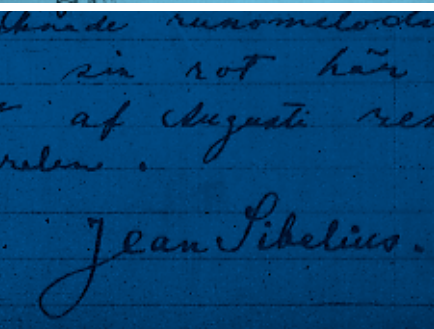 runomelodi
sin rot här
af Augusti res
Jean Sibelius.